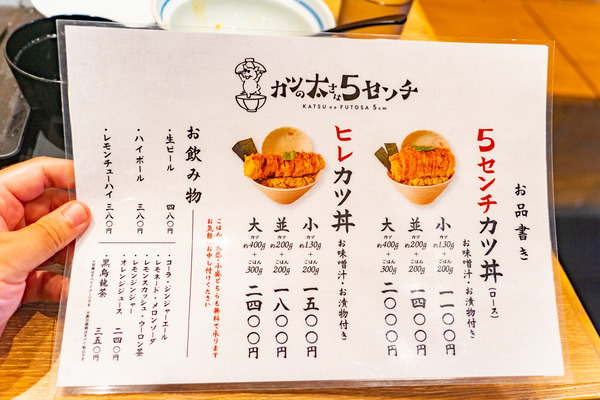 カツの太さは5センチ
KATSU no FUTOSA 5cm
お品書き
5センチカツ丼(ロース)
お味噌汁・お漬物付き
小 カツ約130g+ごはん200g 一一〇〇円
並 カツ約200g+ごはん200g 一四〇〇円
大 カツ約400g+ごはん300g 二〇〇〇円
ヒレカツ丼
お味噌汁・お漬物付き
小 カツ約130g+ごはん200g 一五〇〇円
並 カツ約200g+ごはん200g 一八〇〇円
大 カツ約400g+ごはん300g 二四〇〇円
ごはん 大盛、小盛どちらも無料で承ります
お気軽にお申し付けください
お飲み物
・生ビール 四八〇円
・ハイボール 三八〇円
・レモンチューハイ 三八〇円
・コーラ・ジンジャーエール
・レモネード・メロンソーダ
・レモンスカッシュ・ウーロン茶
・レモンジンジャー
・オレンジジュース 二四〇円
・黒烏龍茶 三五〇円